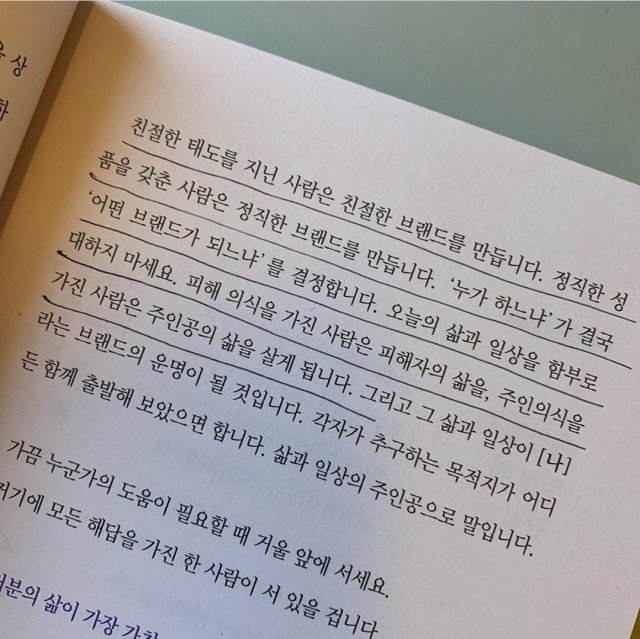 상
하
친절한 태도를 지닌 사람은 친절한 브랜드를 만듭니다. 정직한 성
품을 갖춘 사람은 정직한 브랜드를 만듭니다. ‘누가 하느냐’가 결국
‘어떤 브랜드가 되느냐’를 결정합니다. 오늘의 삶과 일상을 함부로
대하지 마세요. 피해 의식을 가진 사람은 피해자의 삶을, 주인의식을
가진 사람은 주인공의 삶을 살게 됩니다. 그리고 그 삶과 일상이 [나]
라는 브랜드의 운명이 될 것입니다. 각자가 추구하는 목적지가 어디
든 함께 출발해 보았으면 합니다. 삶과 일상의 주인공으로 말입니다.
가끔 누군가의 도움이 필요할 때 거울 앞에 서세요.
거기에 모든 해답을 가진 한 사람이 서 있을 겁니다
러분의 삶이 가장 가치